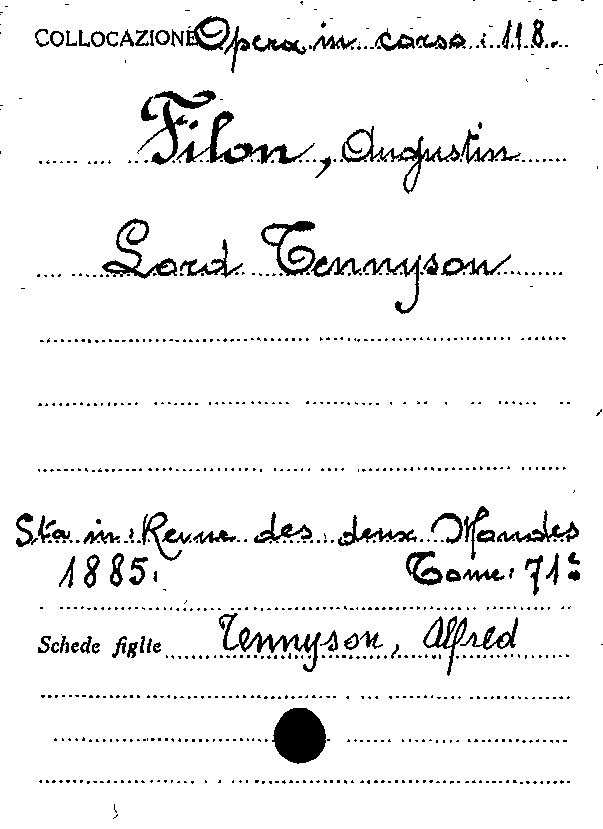 COLLOCAZIONE Opera in corso: 118.
Filon, Augustin
Lord Tennyson
Sta in: Revue des deux Mondes
1885. Tome: 71º
Schede figlie Tennyson, Alfred